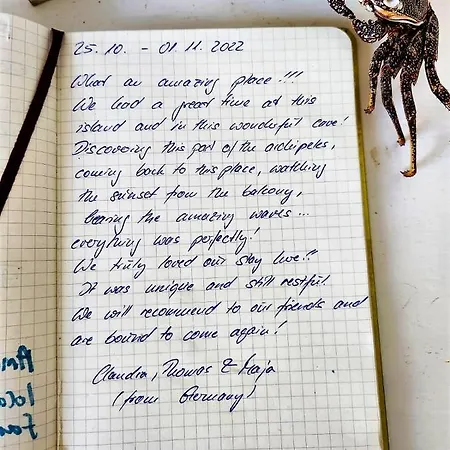 25.10. - 01.11.2022
What an amazing place!!!
We had a great time at this
island and in this wonderful cave!
Discovering this part of the archipels,
coming back to this place, watching
the sunset from the balcony,
hearing the amazing waves...
everything was perfectly!
We truly loved our stay here!!
It was unique and still restful.
We will recommend to our friends and
are bound to come again!
Claudia, Thomas & Maja
(from Germany)